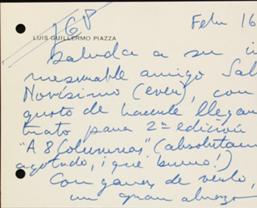 168
Feb 16
LUIS GUILLERMO PIAZZA
Saluda a su i
mesnable amigo Sal
Novísimo (ever), con
gusto de hacerle llegar
trato para 2ª edición
"A 8 Columnas" (absolutam
agotado, ¡qué bueno!)
Con ganas de verlo,
un gran abrazo